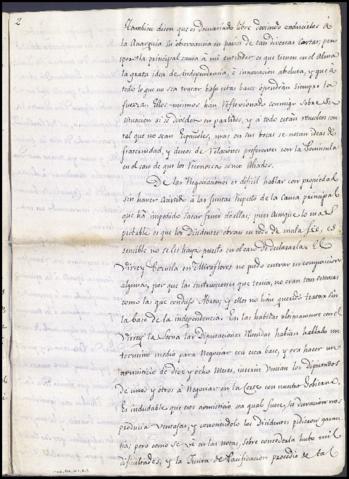 2
Tambien dicen que es demasiado libre
la Anarquia la observancia en paises de tan diversas Castas; pero
la principal causa á mi entender es que tienen en el Alma
la grata idea de independencia, é innovacion absoluta, y que á
todo lo que no sea tratar bajo estas bases opondrán siempre la
fuerza. Ellos mismos han reflexionado conmigo sobre
situacion si se dividen en partidos, y á todo estan resueltos con
tal que no sean Españoles, mas en sus bocas se notan ideas de
fraternidad, y deseos de relaciones preferentes con la Peninsula
en el caso de que los reconozca como aliados.
De las Negociaciones es dificil hablar con propiedad
sin hacer á las Juntas respeto de la Causa principal
que há impedido sacar fruto de ellas; pues aunque lo mas
probable es que los Disidentes obran en todo de mala fée, es
sensible no se les haya puesto en el caso de declararla. El
Virrey Pezuela en Miraflores no pudo entrar en composicion
alguna, por que las instrucciones que tenia, no eran tan extensas
como las que condujo Abreu; y ellos no han querido tratar sin
la base de la independencia. En las habidas ultimamente con el
Virrey la Serna las Diputaciones Reunidas habian hallado un
termino medio para Negociar con esta base, y era hacer un
armisticio de diez y ocho Meses, interin venian los Diputados
de unos y otros á Negociar en la Corte con nuestro Gobierno.
Es indudable que este armisticio sea qual fuere su duracion nos
producia Ventajas, y conociendolo los Disidentes pidieron garan-
tias, pero como se vé en las notas, sobre concederla hubo mil
dificultades, y la Junta de Pacificacion procedió de tal